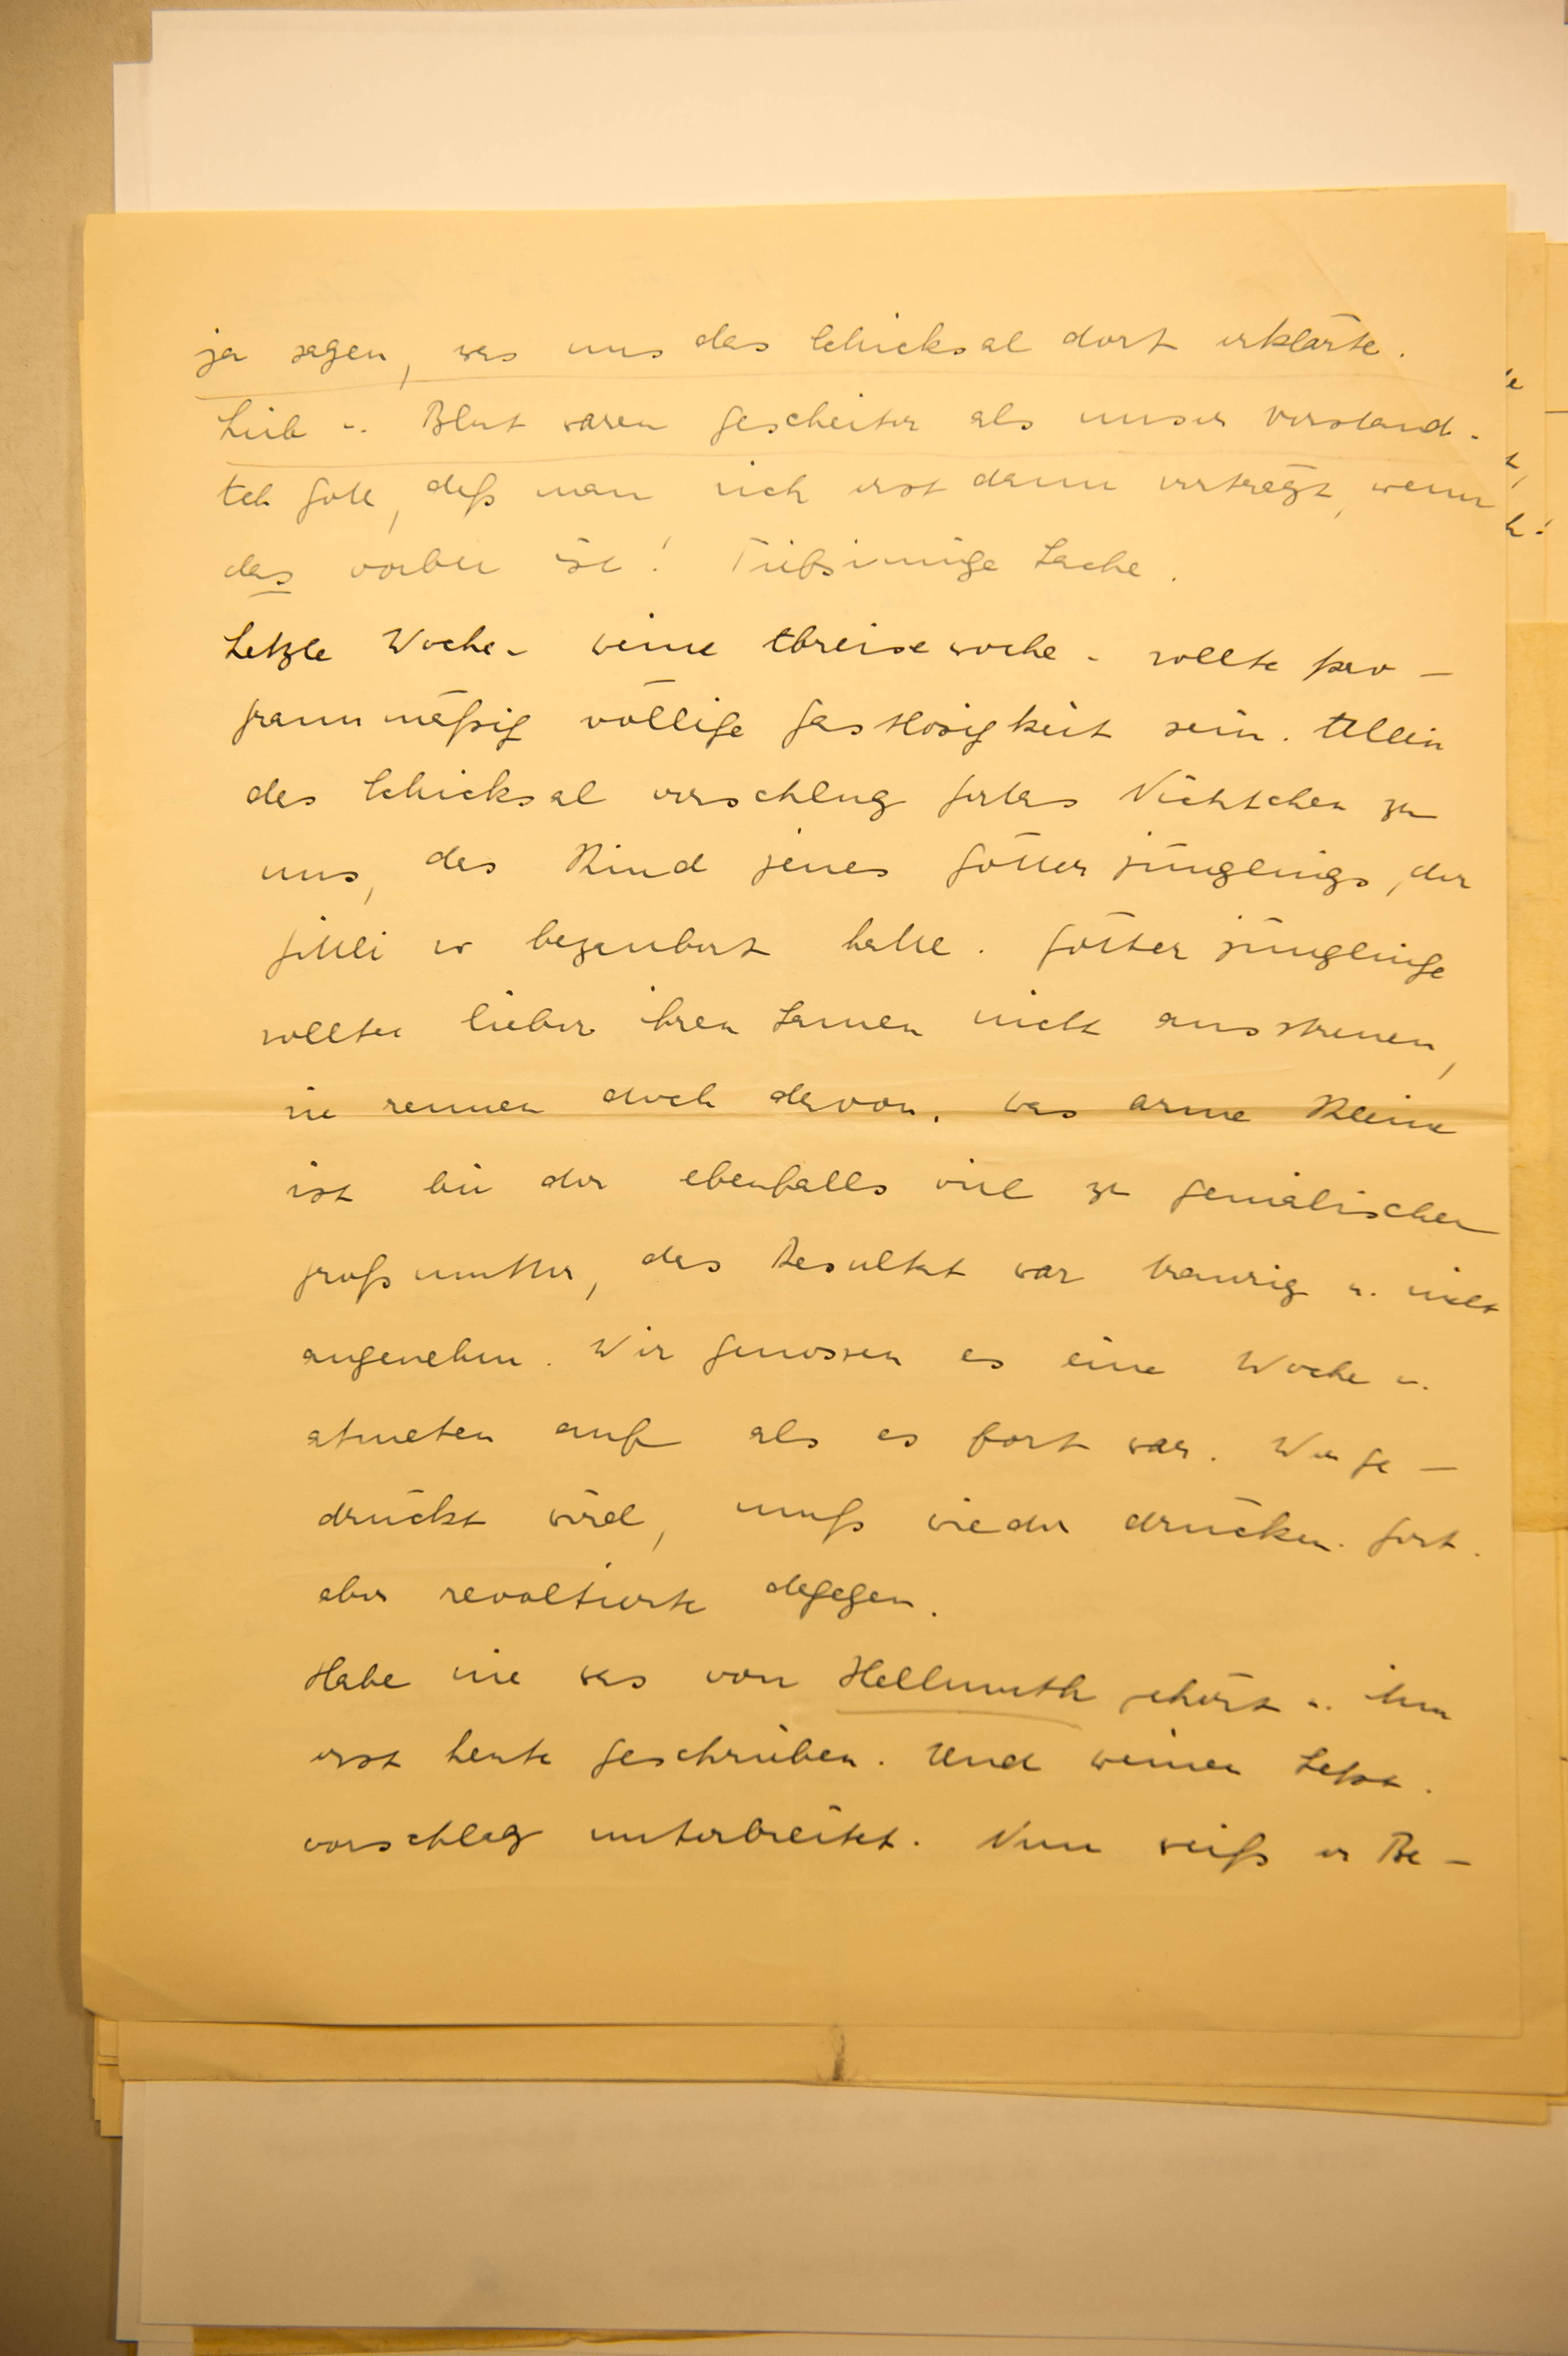 ja sagen, was uns das Schicksal dort erklärte.
Leib u. Blut waren gescheiter als unser Verstand.
Ach Gott, daß man sich erst dann verträgt, wenn
das vorbei ist! Tiefsinnige Sache.
Letzte Woche - meine Abreisewoche - sollte pro-
grammäßig völlige Gastlosigkeit sein. Allein
das Schicksal verschlug Gertas Nichtchen zu
uns, das Kind jenes Götterjünglings, der
Gitteli so bezaubert hatte. Götterjünglinge
sollten lieber ihren Samen nicht ausstreuen,
sie rennen doch davon. Das arme Kleine
ist bei der ebenfalls viel zu genialischen
Großmutter, das Resultat war traurig u. nicht
angenehm. Wir genossen es eine Woche u.
atmeten auf als es fort war. Wer ge-
drückt wird, muß wieder drücken. Gert.
aber revoltierte dagegen.
Habe nie was von Hellmuth gehört u. ihm
erst heute geschrieben. Und meinen Sept.
vorschlag unterbreitet. Nun weiß er Be-